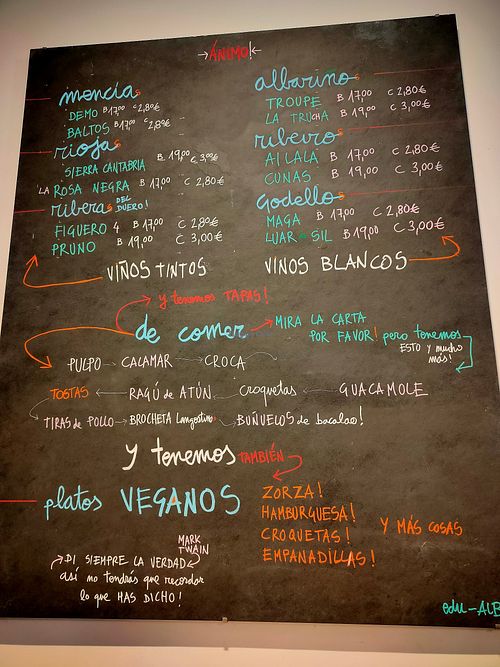 →ÁNIMO!←
mencías
DEMO B 17,00 C 2,80€
BALTOS B 17,00 C 2,80€
riojas
SIERRA CANTABRIA B 19,00 C 3,00€
LA ROSA NEGRA B 17,00 C 2,80€
riberas DEL DUERO!
FIGUERO 4 B 17,00 C 2,80€
PRUNO B 19,00 C 3,00€
VIÑOS TINTOS
albariños
TROUPE B 17,00 C 2,80€
LA TRUCHA B 19,00 C 3,00€
ribeiros
AILALÁ B 17,00 C 2,80€
CUNAS B 19,00 C 3,00€
godellos
MAGA B 17,00 C 2,80€
LUAR SIL B 19,00 C 3,00€
VINOS BLANCOS
y tenemos TAPAS!
de comer → MIRA LA CARTA
POR FAVOR! pero tenemos
ESTO y mucho
más!
PULPO → CALAMAR → CROCA
TOSTAS ← RAGÚ de ATÚN ← croquetas ← GUACAMOLE
TIRAS de POLLO → BROCHETA langostino → BUÑUELOS de bacalao!
y tenemos TAMBIÉN
platos VEGANOS
ZORZA!
HAMBURGUESA!
CROQUETAS!
EMPANADILLAS!
Y MÁS COSAS
MARK
TWAIN
DI SIEMPRE LA VERDAD
así no tendrás que recordar
lo que HAS DICHO!
edu-ALB